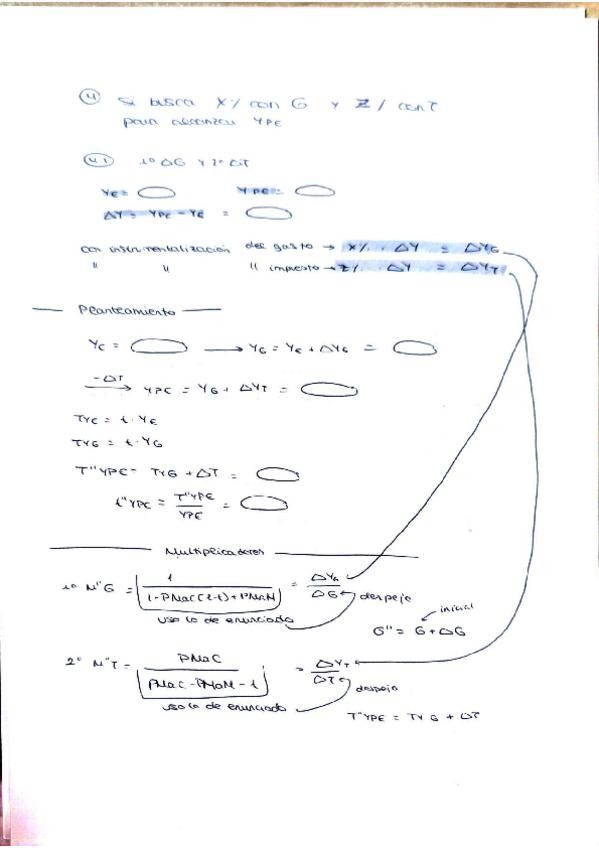 4 Si busca X% con G y Z% con T
para alcanzar YPE
4.1 1º ΔG y 2º ΔT
YE = YPE =
ΔY = YPE - YE =
con instrumentalización del gasto → X% · ΔY = ΔYG
" " " impuesto → Z% · ΔY = ΔYT
Planteamiento
YE = → YG = YE + ΔYG =
-ΔT → YPE = YG + ΔYT =
TYE = t · YE
TYG = t · YG
T"YPE = TYG + ΔT =
t"YPE = T"YPE / YPE =
Multiplicadores
1º M"G = 1 / 1-PMaC(1-t)+PMaM = ΔYG / ΔG despeje
uso lo de enunciado
inicial
G" = G + ΔG
2º M"T = PMaC / PMaC-PMaM-1 = ΔYT / ΔT despejo
uso lo de enunciado
T"YPE = TYG + ΔT